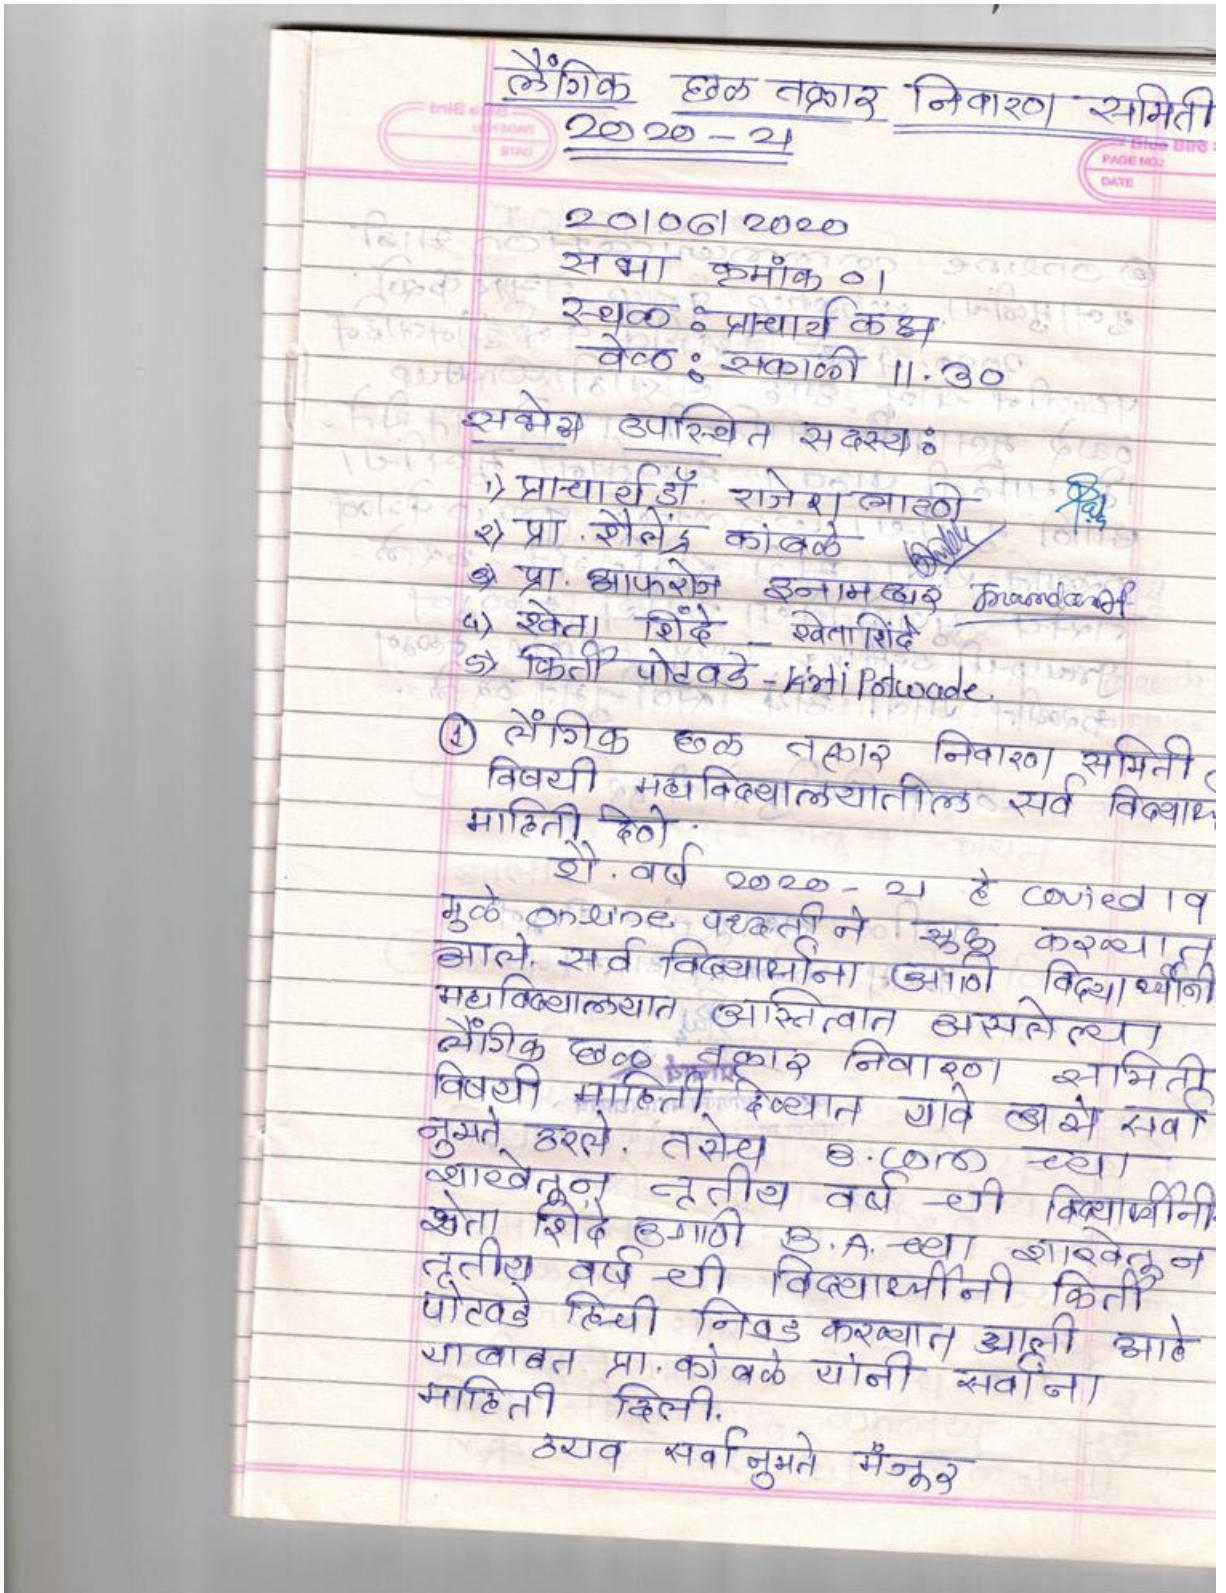 लैंगिक छळ तक्रार निवारण समिती
2020 - 21
Blue Bird
PAGE NO.:
DATE
20/06/2020
सभा क्रमांक 01
स्थळ : प्राचार्य कक्ष
वेळ : सकाळी 11.30
सभेस उपस्थित सदस्य :
१) प्राचार्य डॉ. राजेश
२) प्रा. शैलेंद्र कांबळे
३) प्रा. आफरोज इनामदार
४) श्वेता शिंदे - श्वेता शिंदे
५) किर्ती पोटवडे - Kirti Potwade.
① लैंगिक छळ तक्रार निवारण समिती
विषयी महाविद्यालयातील सर्व
माहिती देणे.
शै. वर्ष 2020 - 21 हे covied 19
मुळे online पध्दतीने सुरू करण्यात
आले. सर्व विद्यार्थांना आणि
महाविद्यालयात अस्तित्वात असलेल्या
लैंगिक छळ तक्रार निवारण समिती
विषयी माहिती देण्यात यावे असे सर्वा
नुमते ठरले. तसेच B.com च्या
शाखेतून तृतीय वर्ष ची विद्यार्थीनी
श्वेता शिंदे आणी B.A. च्या शाखेतून
तृतीय वर्ष ची विद्यार्थीनी किर्ती
पोटवडे हिची निवड करण्यात आली आहे
याबाबत प्रा. कांबळे यांनी सर्वांना
माहिती दिली.
ठराव सर्वानुमते मंजूर